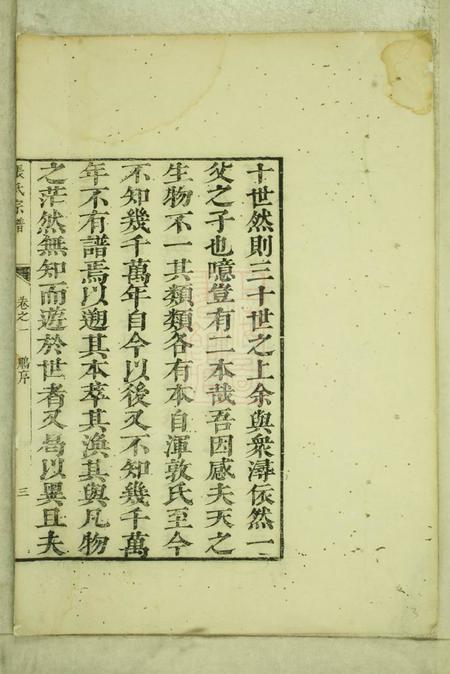 十世然則三十世之上余與衆潯依然一
父之子也噫豈有二本哉吾因感夫天之
生物不一其類類各有本自渾敦氏至今
不知幾千萬年自今以後又不知幾千萬
年不有譜焉以遡其本萃其渙其與凡物
之茫然無知而遊於世者又曷以異且夫
張氏宗譜
卷之一
鵬序
三